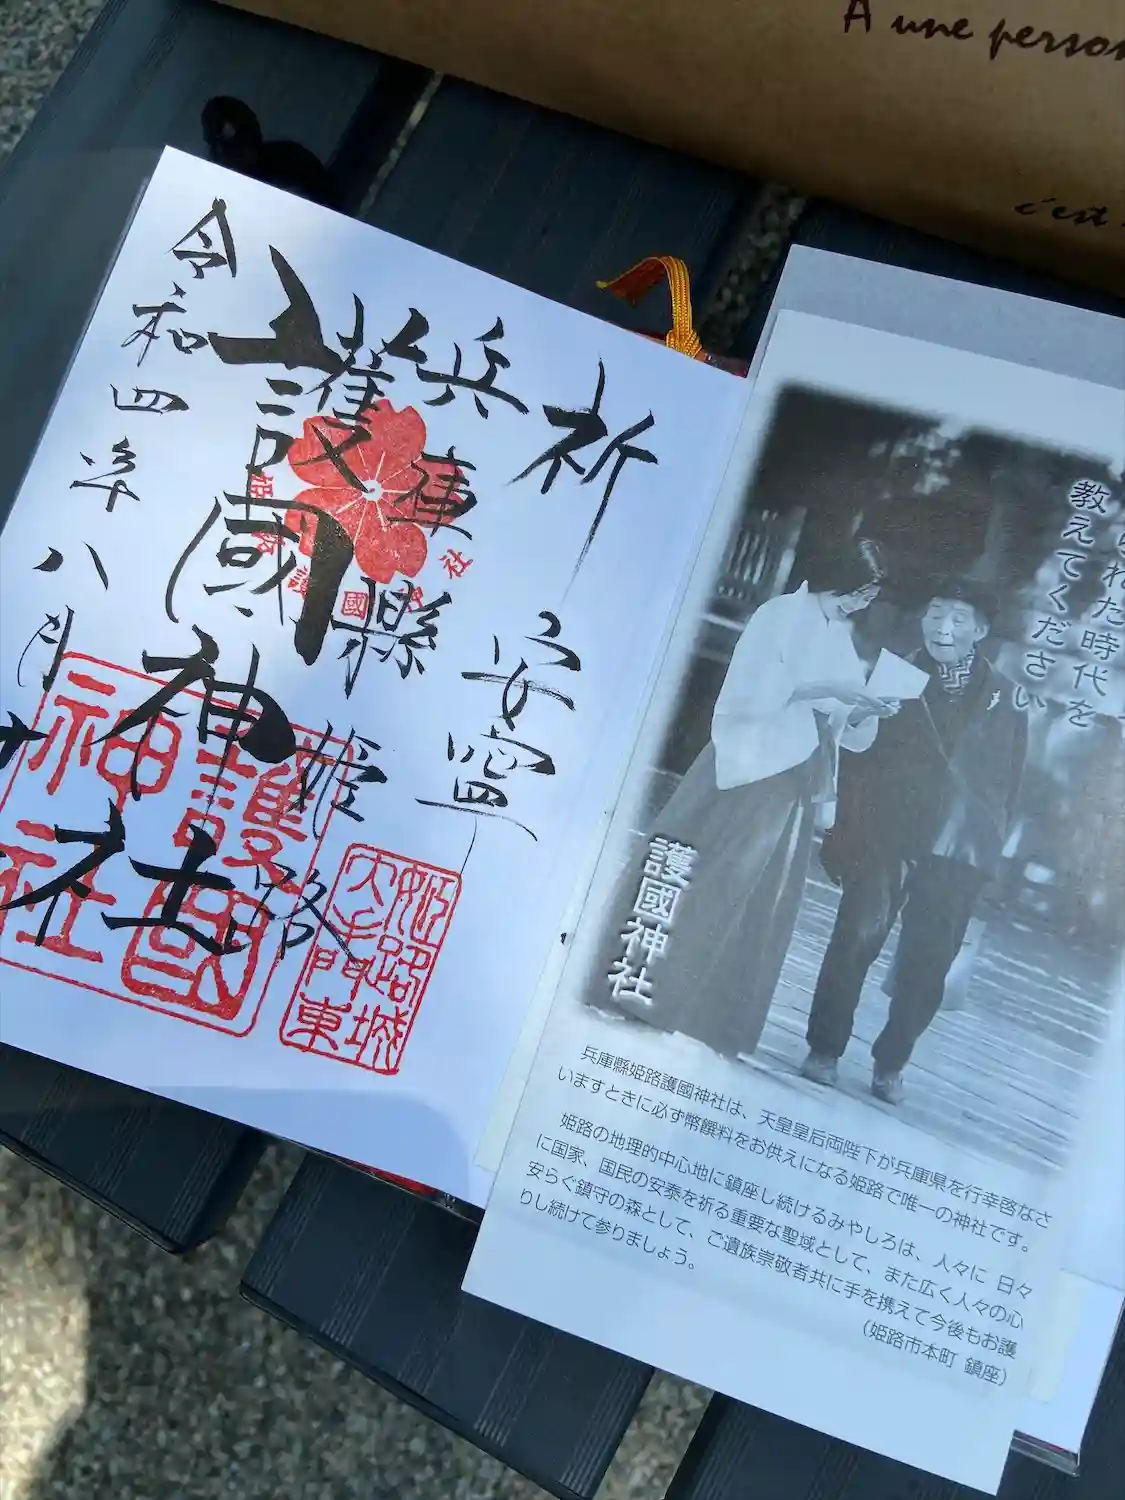 À une person
c'est
祈 安寧
兵庫縣 姫路
護國神社
令和四年八月
姫路城
大手門東
護國
神社
られた時代を
教えてください
護國神社
兵庫縣姫路護國神社は、天皇皇后両陛下が兵庫県を行幸啓なさ
いますときに必ず幣饌料をお供えになる姫路で唯一の神社です。
姫路の地理的中心地に鎮座し続けるみやしろは、人々に 日々
に国家、国民の安泰を祈る重要な聖域として、また広く人々の心
安らぐ鎮守の森として、ご遺族崇敬者共に手を携えて今後もお護
りし続けて参りましょう。
(姫路市本町 鎮座)